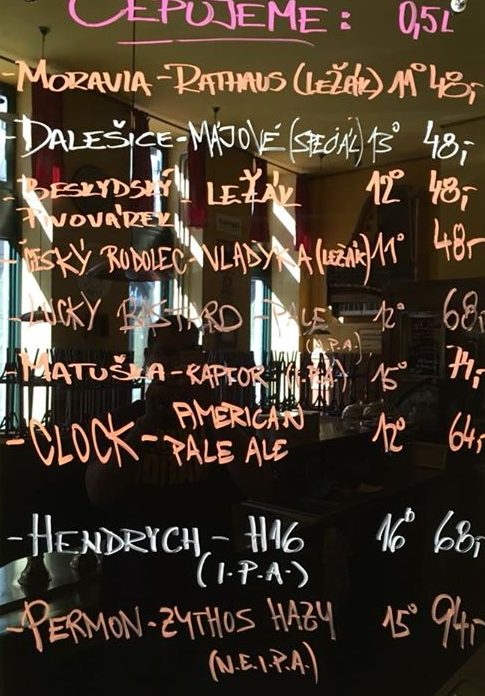 ČEPUJEME: 0,5L
- MORAVIA - RATHAUS (LEŽÁK) 11° 48,-
- DALEŠICE - MÁJOVÉ (SPECIÁL) 13° 48,-
- BESKYDSKÝ - LEŽÁK 12° 48,-
PIVOVÁREK
- ČESKÝ RUDOLEC - VLADYKA (LEŽÁK) 11° 48,-
- LUCKY BASTARD - PALE 12° 68,-
(A.P.A)
- MATUŠKA - RAPTOR (I.P.A) 15° 74,-
- CLOCK - AMERICAN
PALE ALE 12° 64,-
- HENDRYCH - H16 16° 68,-
(I.P.A.)
- PERMON - ZYTHOS HAZY 15° 94,-
(N.E.I.P.A.)